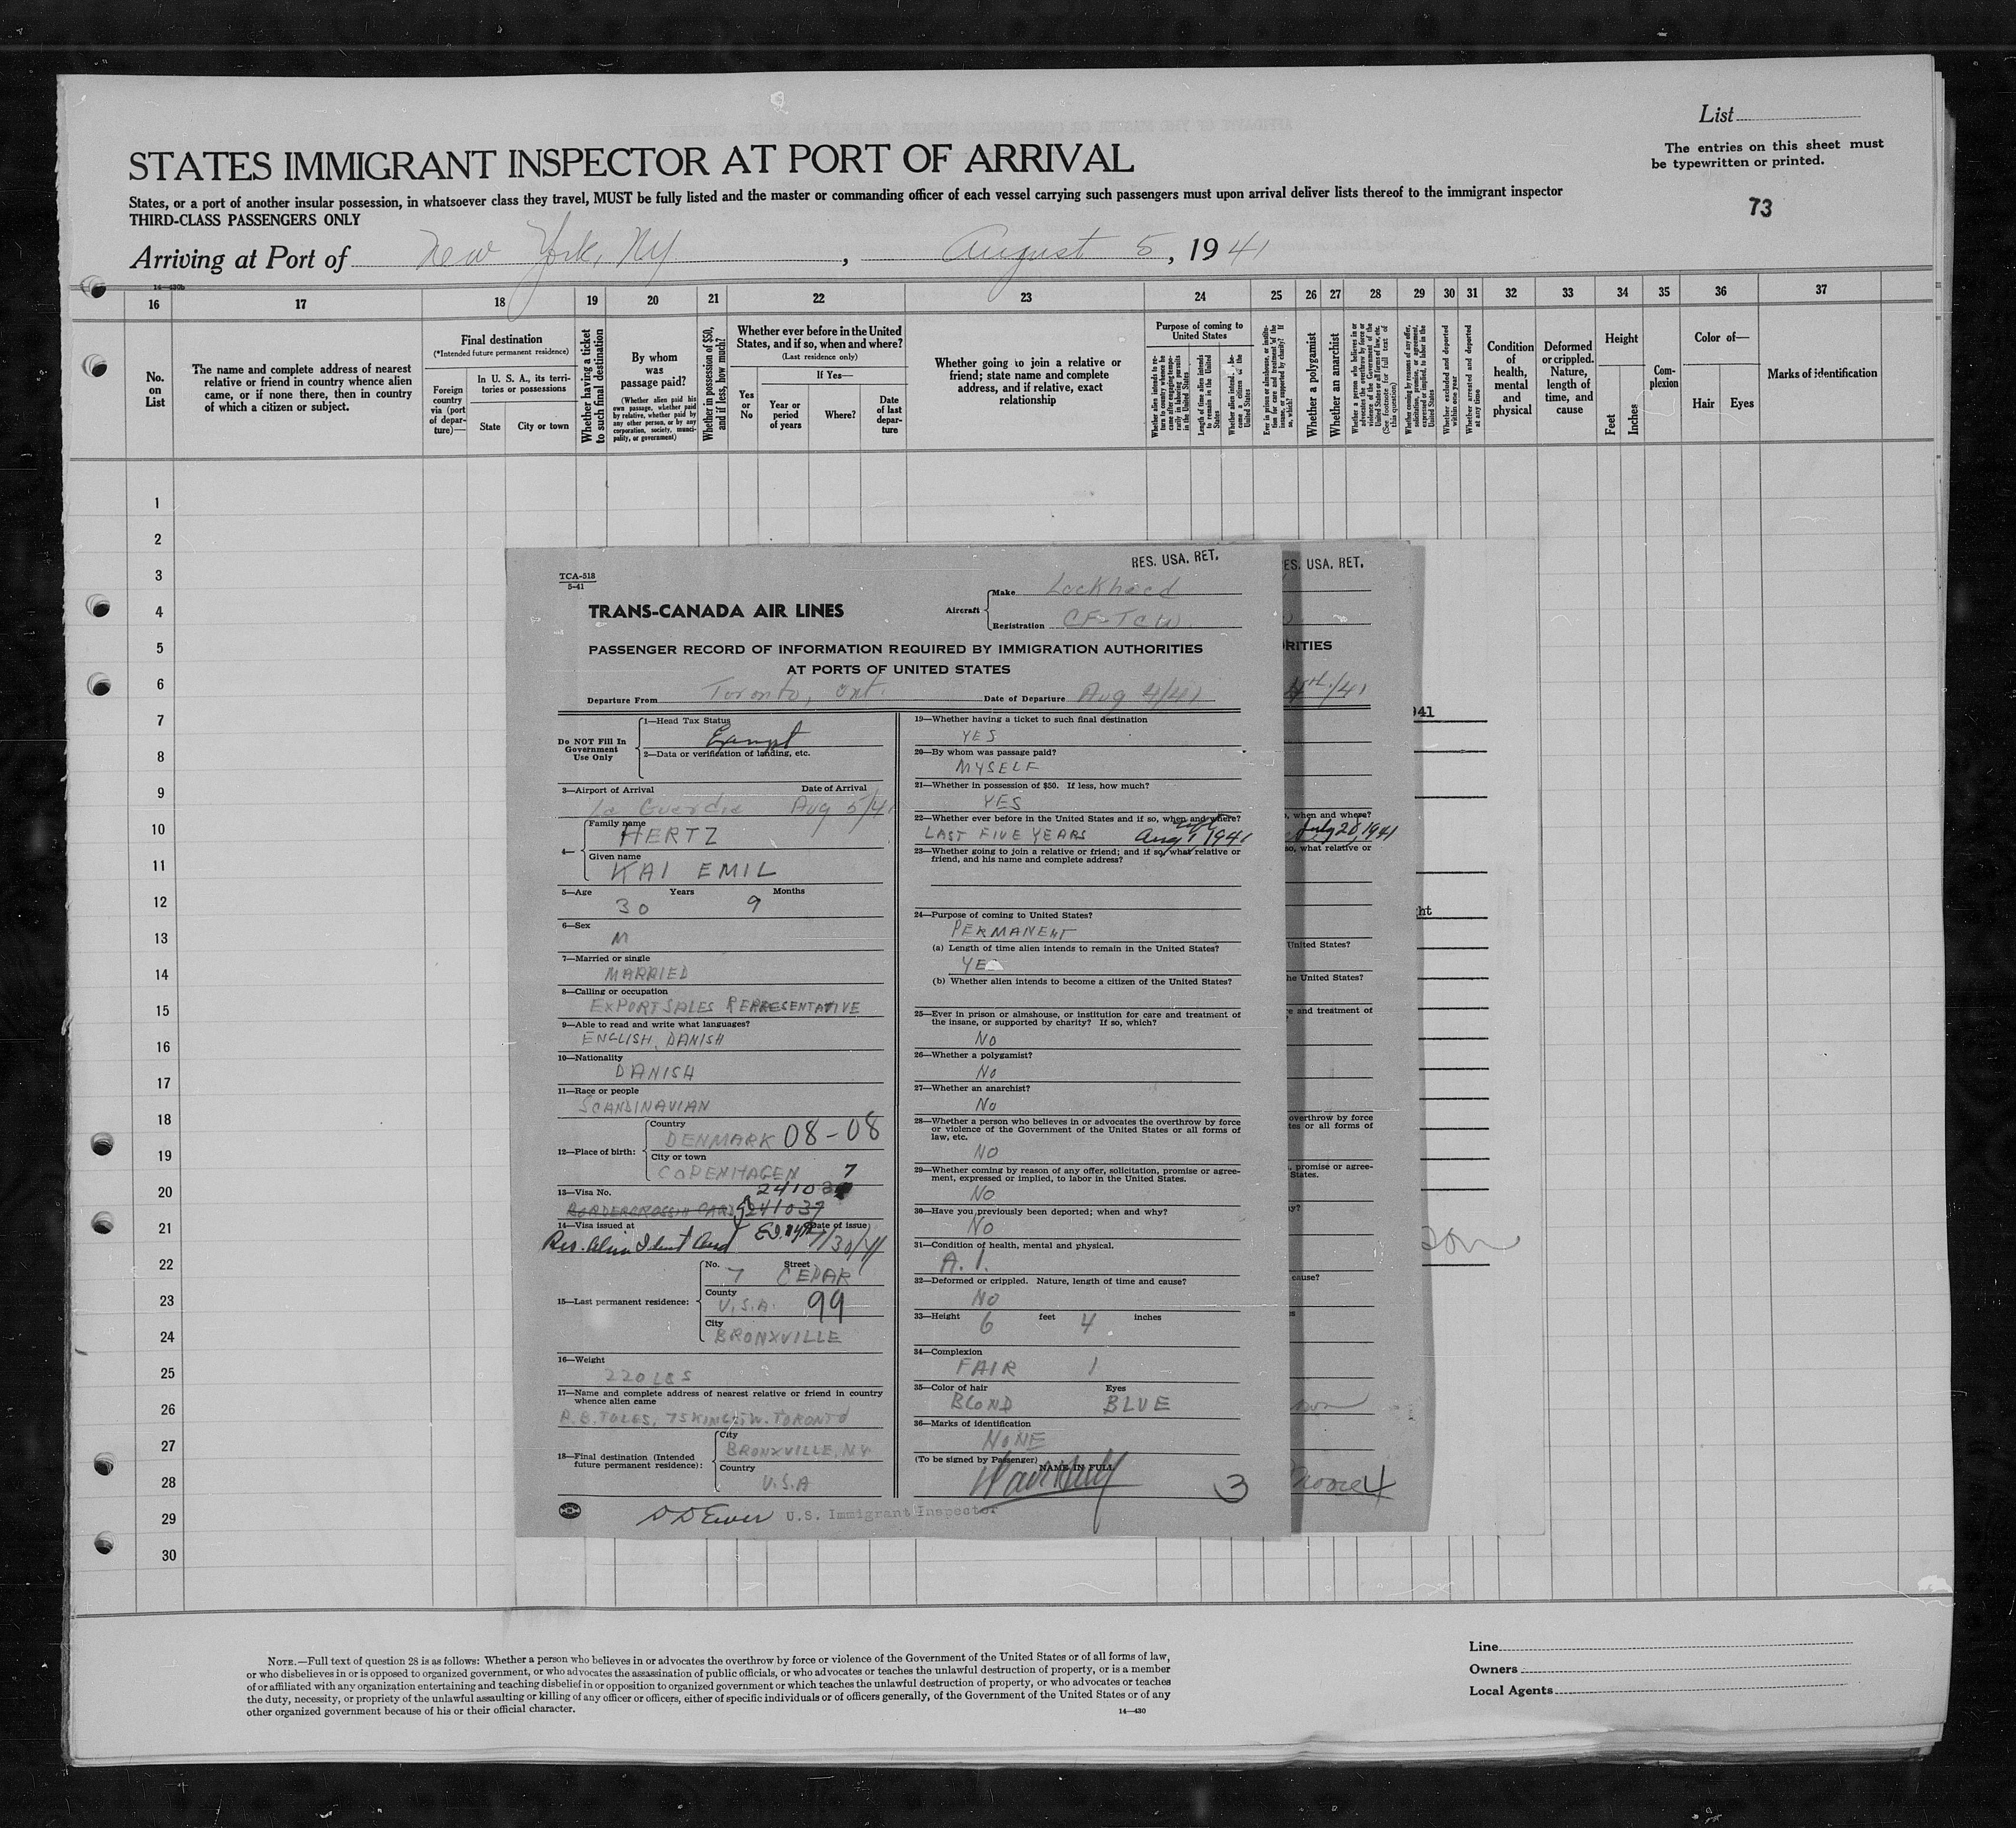 List
The entries on this sheet must
be typewritten or printed.
73
STATES IMMIGRANT INSPECTOR AT PORT OF ARRIVAL
States, or a port of another insular possession, in whatsoever class they travel, MUST be fully listed and the master or commanding officer of each vessel carrying such passengers must upon arrival deliver lists thereof to the immigrant inspector
THIRD-CLASS PASSENGERS ONLY
Arriving at Port of New York, NY, August 5, 1941
14—430b
16 17 18 19 20 21 22 23 24 25 26 27 28 29 30 31 32 33 34 35 36 37
No. on List
The name and complete address of nearest
relative or friend in country whence alien
came, or if none there, then in country
of which a citizen or subject.
Final destination
(*Intended future permanent residence)
Foreign country via (port of departure)—
In U. S. A., its territories or possessions
State
City or town
Whether having a ticket to such final destination
By whom was passage paid?
(Whether alien paid his own passage, whether paid by relative, whether paid by any other person, or by any corporation, society, municipality, or government)
Whether in possession of $50, and if less, how much?
Whether ever before in the United
States, and if so, when and where?
(Last residence only)
If Yes—
Yes or No
Year or period of years
Where?
Date of last departure
Whether going to join a relative or
friend; state name and complete
address, and if relative, exact
relationship
Purpose of coming to
United States
Length of time alien intends to remain in the United States
Whether a polygamist
Whether an anarchist
Whether excluded and deported within one year
Whether arrested and deported at any time
Condition of health, mental and physical
Deformed or crippled. Nature, length of time, and cause
Height
Feet
Inches
Complexion
Color of—
Hair
Eyes
Marks of identification
1
2
3
4
5
6
7
8
9
10
11
12
13
14
15
16
17
18
19
20
21
22
23
24
25
26
27
28
29
30
RES. USA. RET.
TCA-518
5-41
TRANS-CANADA AIR LINES
Aircraft
Make Lockheed
Registration CF-TCW
PASSENGER RECORD OF INFORMATION REQUIRED BY IMMIGRATION AUTHORITIES
AT PORTS OF UNITED STATES
Departure From Toronto, Ont. Date of Departure Aug 4/41
Do NOT Fill In
Government
Use Only
1—Head Tax Status
Exempt
2—Data or verification of landing, etc.
3—Airport of Arrival Date of Arrival
La Guardia Aug 5/41
4—
Family name
HERTZ
Given name
KAI EMIL
5—Age Years Months
30 9
6—Sex
M
7—Married or single
MARRIED
8—Calling or occupation
EXPORT SALES REPRESENTATIVE
9—Able to read and write what languages?
ENGLISH, DANISH
10—Nationality
DANISH
11—Race or people
SCANDINAVIAN
12—Place of birth:
Country
DENMARK 08-08
City or town
COPENHAGEN 7
13—Visa No.
BORDERCROSSIN CARD 241039
14—Visa issued at Date of issue
Res. Alien Ident Card 7/30/41
15—Last permanent residence:
No. Street
7 CEDAR
County
U.S.A. 99
City
BRONXVILLE
16—Weight
220 LBS
17—Name and complete address of nearest relative or friend in country
whence alien came
75 KING ST. W. TORONTO
18—Final destination (Intended
future permanent residence):
City
BRONXVILLE, N.Y.
Country
U.S.A
U.S. Immigrant Inspector
19—Whether having a ticket to such final destination
YES
20—By whom was passage paid?
MYSELF
21—Whether in possession of $50. If less, how much?
YES
22—Whether ever before in the United States and if so, when and where?
LAST FIVE YEARS left Aug 1, 1941
23—Whether going to join a relative or friend; and if so, what relative or
friend, and his name and complete address?
24—Purpose of coming to United States?
PERMANENT
(a) Length of time alien intends to remain in the United States?
YES
(b) Whether alien intends to become a citizen of the United States?
25—Ever in prison or almshouse, or institution for care and treatment of
the insane, or supported by charity? If so, which?
No
26—Whether a polygamist?
No
27—Whether an anarchist?
No
28—Whether a person who believes in or advocates the overthrow by force
or violence of the Government of the United States or all forms of
law, etc.
NO
29—Whether coming by reason of any offer, solicitation, promise or agree-
ment, expressed or implied, to labor in the United States.
NO
30—Have you previously been deported; when and why?
NO
31—Condition of health, mental and physical.
A. 1.
32—Deformed or crippled. Nature, length of time and cause?
NO
33—Height 6 feet 4 inches
34—Complexion
FAIR 1
35—Color of hair Eyes
BLOND BLUE
36—Marks of identification
NONE
(To be signed by Passenger) NAME IN FULL
3
ES. USA. RET.
RITIES
4th/41
, when and where?
July 28, 1941
so, what relative or
United States?
he United States?
e and treatment of
overthrow by force
tes or all forms of
, promise or agree-
States.
y?
cause?
s
4
941
ght
son
NOTE.—Full text of question 28 is as follows: Whether a person who believes in or advocates the overthrow by force or violence of the Government of the United States or of all forms of law,
or who disbelieves in or is opposed to organized government, or who advocates the assassination of public officials, or who advocates or teaches the unlawful destruction of property, or is a member
of or affiliated with any organization entertaining and teaching disbelief in or opposition to organized government or which teaches the unlawful destruction of property, or who advocates or teaches
the duty, necessity, or propriety of the unlawful assaulting or killing of any officer or officers, either of specific individuals or of officers generally, of the Government of the United States or of any
other organized government because of his or their official character.
14—430
Line
Owners
Local Agents